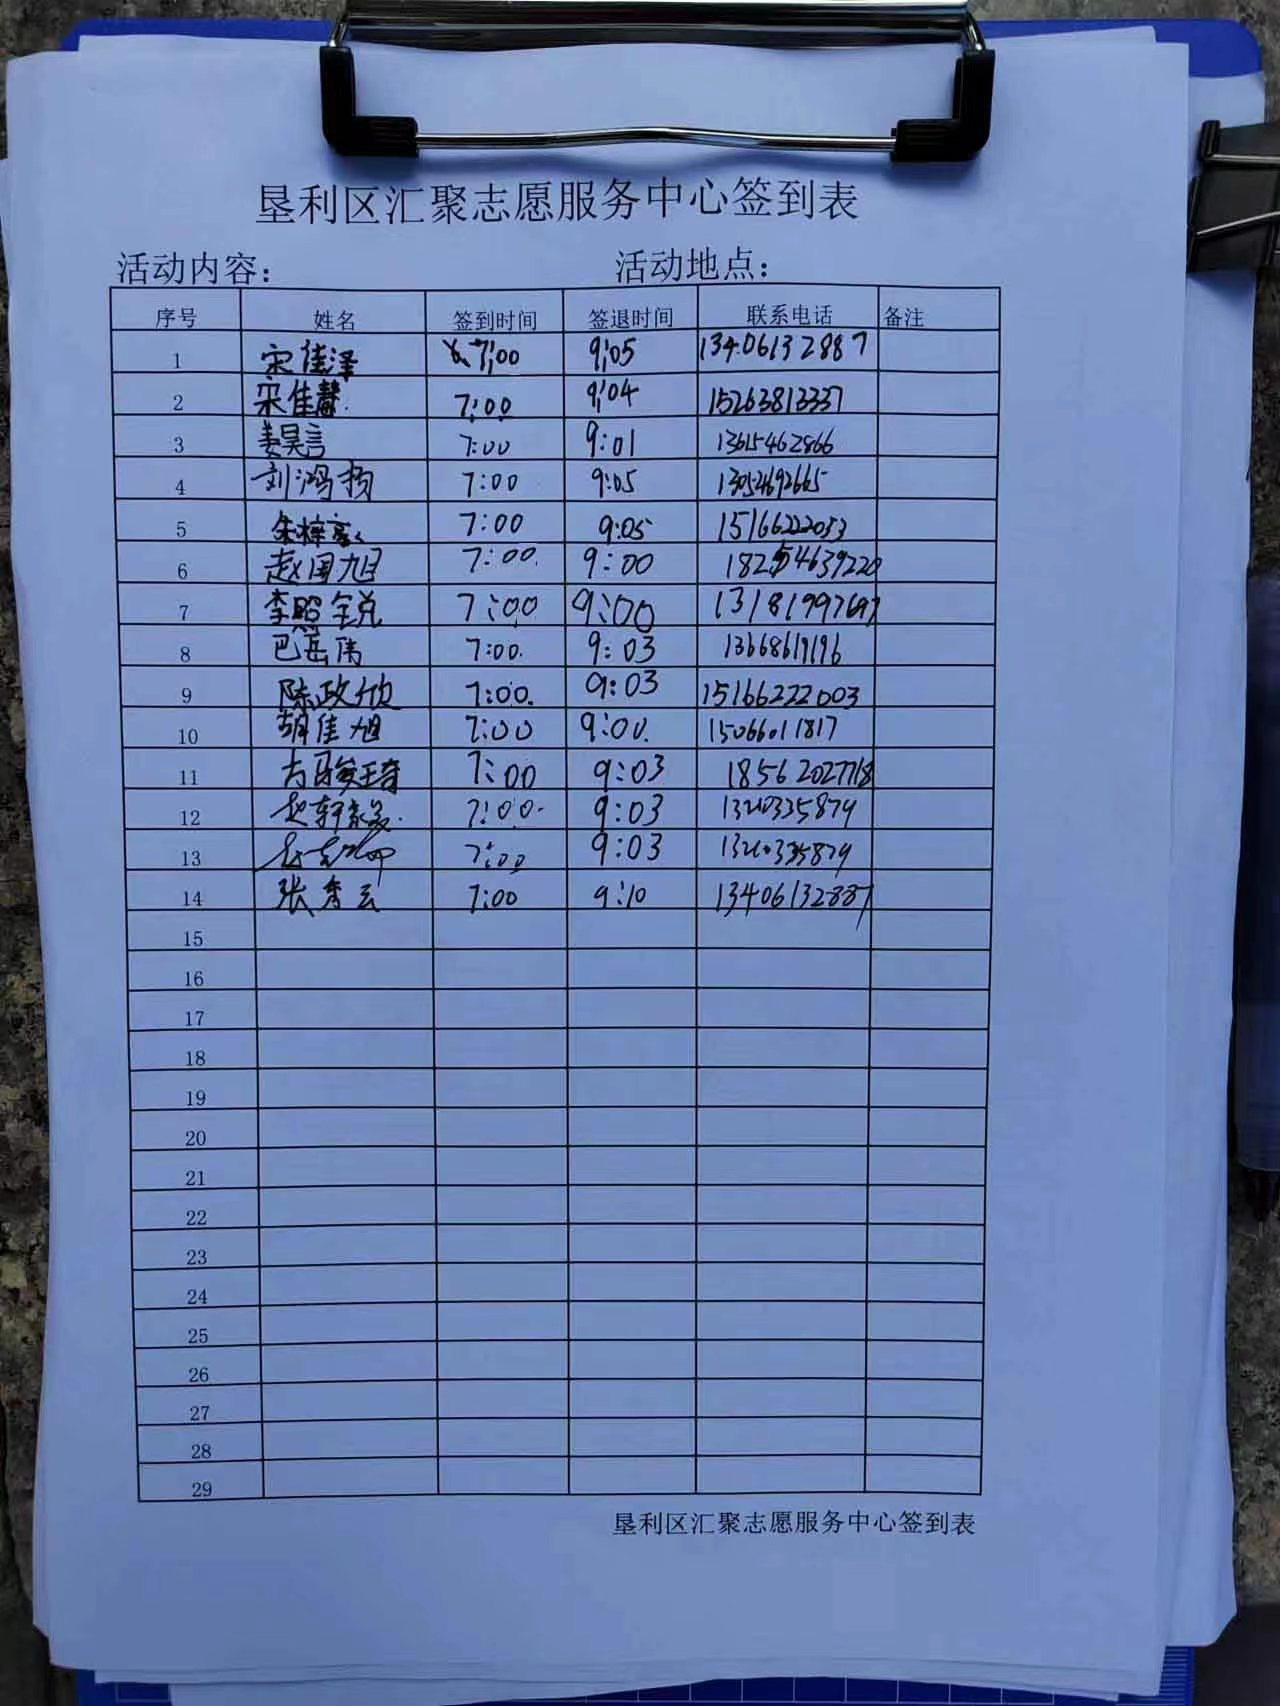 垦利区汇聚志愿服务中心签到表
活动内容： 活动地点：
序号 姓名 签到时间 签退时间 联系电话 备注
1 宋佳泽 7:00 9:05 13406132887
2 宋佳慧 7:00 9:04 15263813337
3 姜昊言 7:00 9:01 13615462866
4 刘鸿扬 7:00 9:05 13054692665
5 朱梓豪 7:00 9:05 15166222053
6 赵国旭 7:00 9:00 18254639220
7 李照锐 7:00 9:00 13181997697
8 巴岳伟 7:00 9:03 13668619196
9 陈政欣 7:00 9:03 15166222003
10 胡佳旭 7:00 9:00 15066011817
11 7:00 9:03 18562027718
12 赵轩毅 7:00 9:03 13210335879
13 7:00 9:03 13210335879
14 张秀云 7:00 9:10 13406132887
15
16
17
18
19
20
21
22
23
24
25
26
27
28
29
垦利区汇聚志愿服务中心签到表